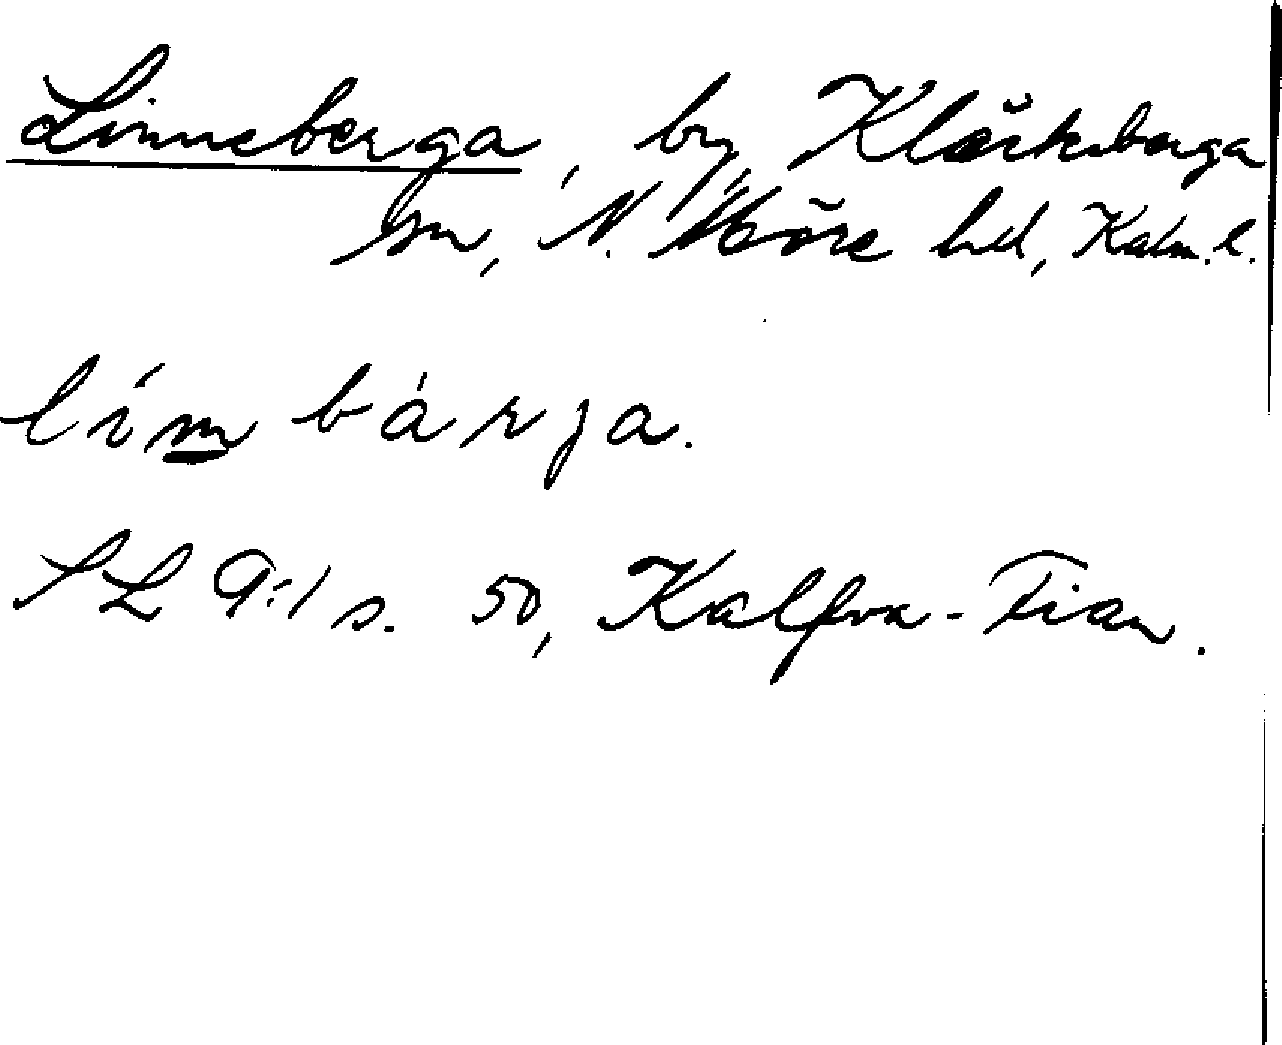 Linneberga, by, Kläckeberga
sn, N. Möre hd, Kalm. l.
límbárja.
SL 9:1 s. 50, Kalfva-Tian.